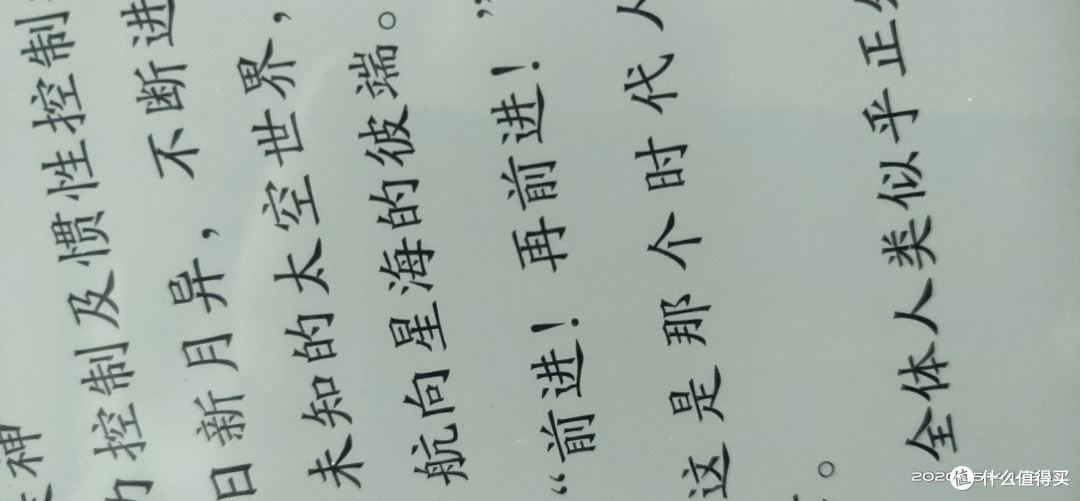 神
力控制及惯性控制
日新月异，不断进
未知的太空世界，
航向星海的彼端。
“前进！再前进！”
这是那个时代人
。
全体人类似乎正
2020
值 什么值得买